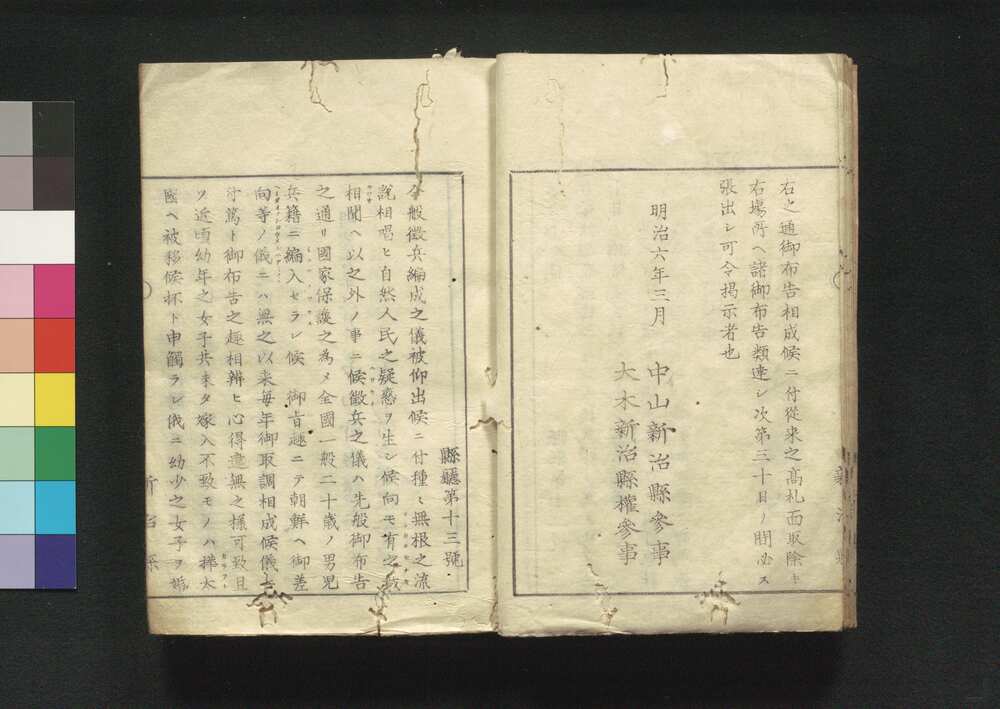 右之通御布告相成候ニ付從来之高札面取除キ
右場所ヘ諸御布告類達シ次第三十日ノ間必ス
張出シ可令掲示者也
明治六年三月
中山新治縣參事
大木新治縣權參事
縣廳第十三號
今般徴兵編成之儀被仰出候ニ付種々無根之流
説相唱ヒ自然人民之疑惑ヲ生シ候向モ有之哉
相聞ヘ以之外ノ事ニ候徴兵之儀ハ先般御布告
之通リ國家保護之為メ全國一般二十歳ノ男児
兵籍ニ編入セラレ候 御旨趣ニテ朝鮮ヘ御差
向等ノ儀ニハ無之以来毎年御取調相成候儀ニ
付篤ト御布告之趣相辨ヒ心得違無之様可致且
ツ近頃幼年之女子共未タ嫁入不致モノハ樺太
國ヘ被移候抔ト申觸ラシ俄ニ幼少之女子ヲ婚